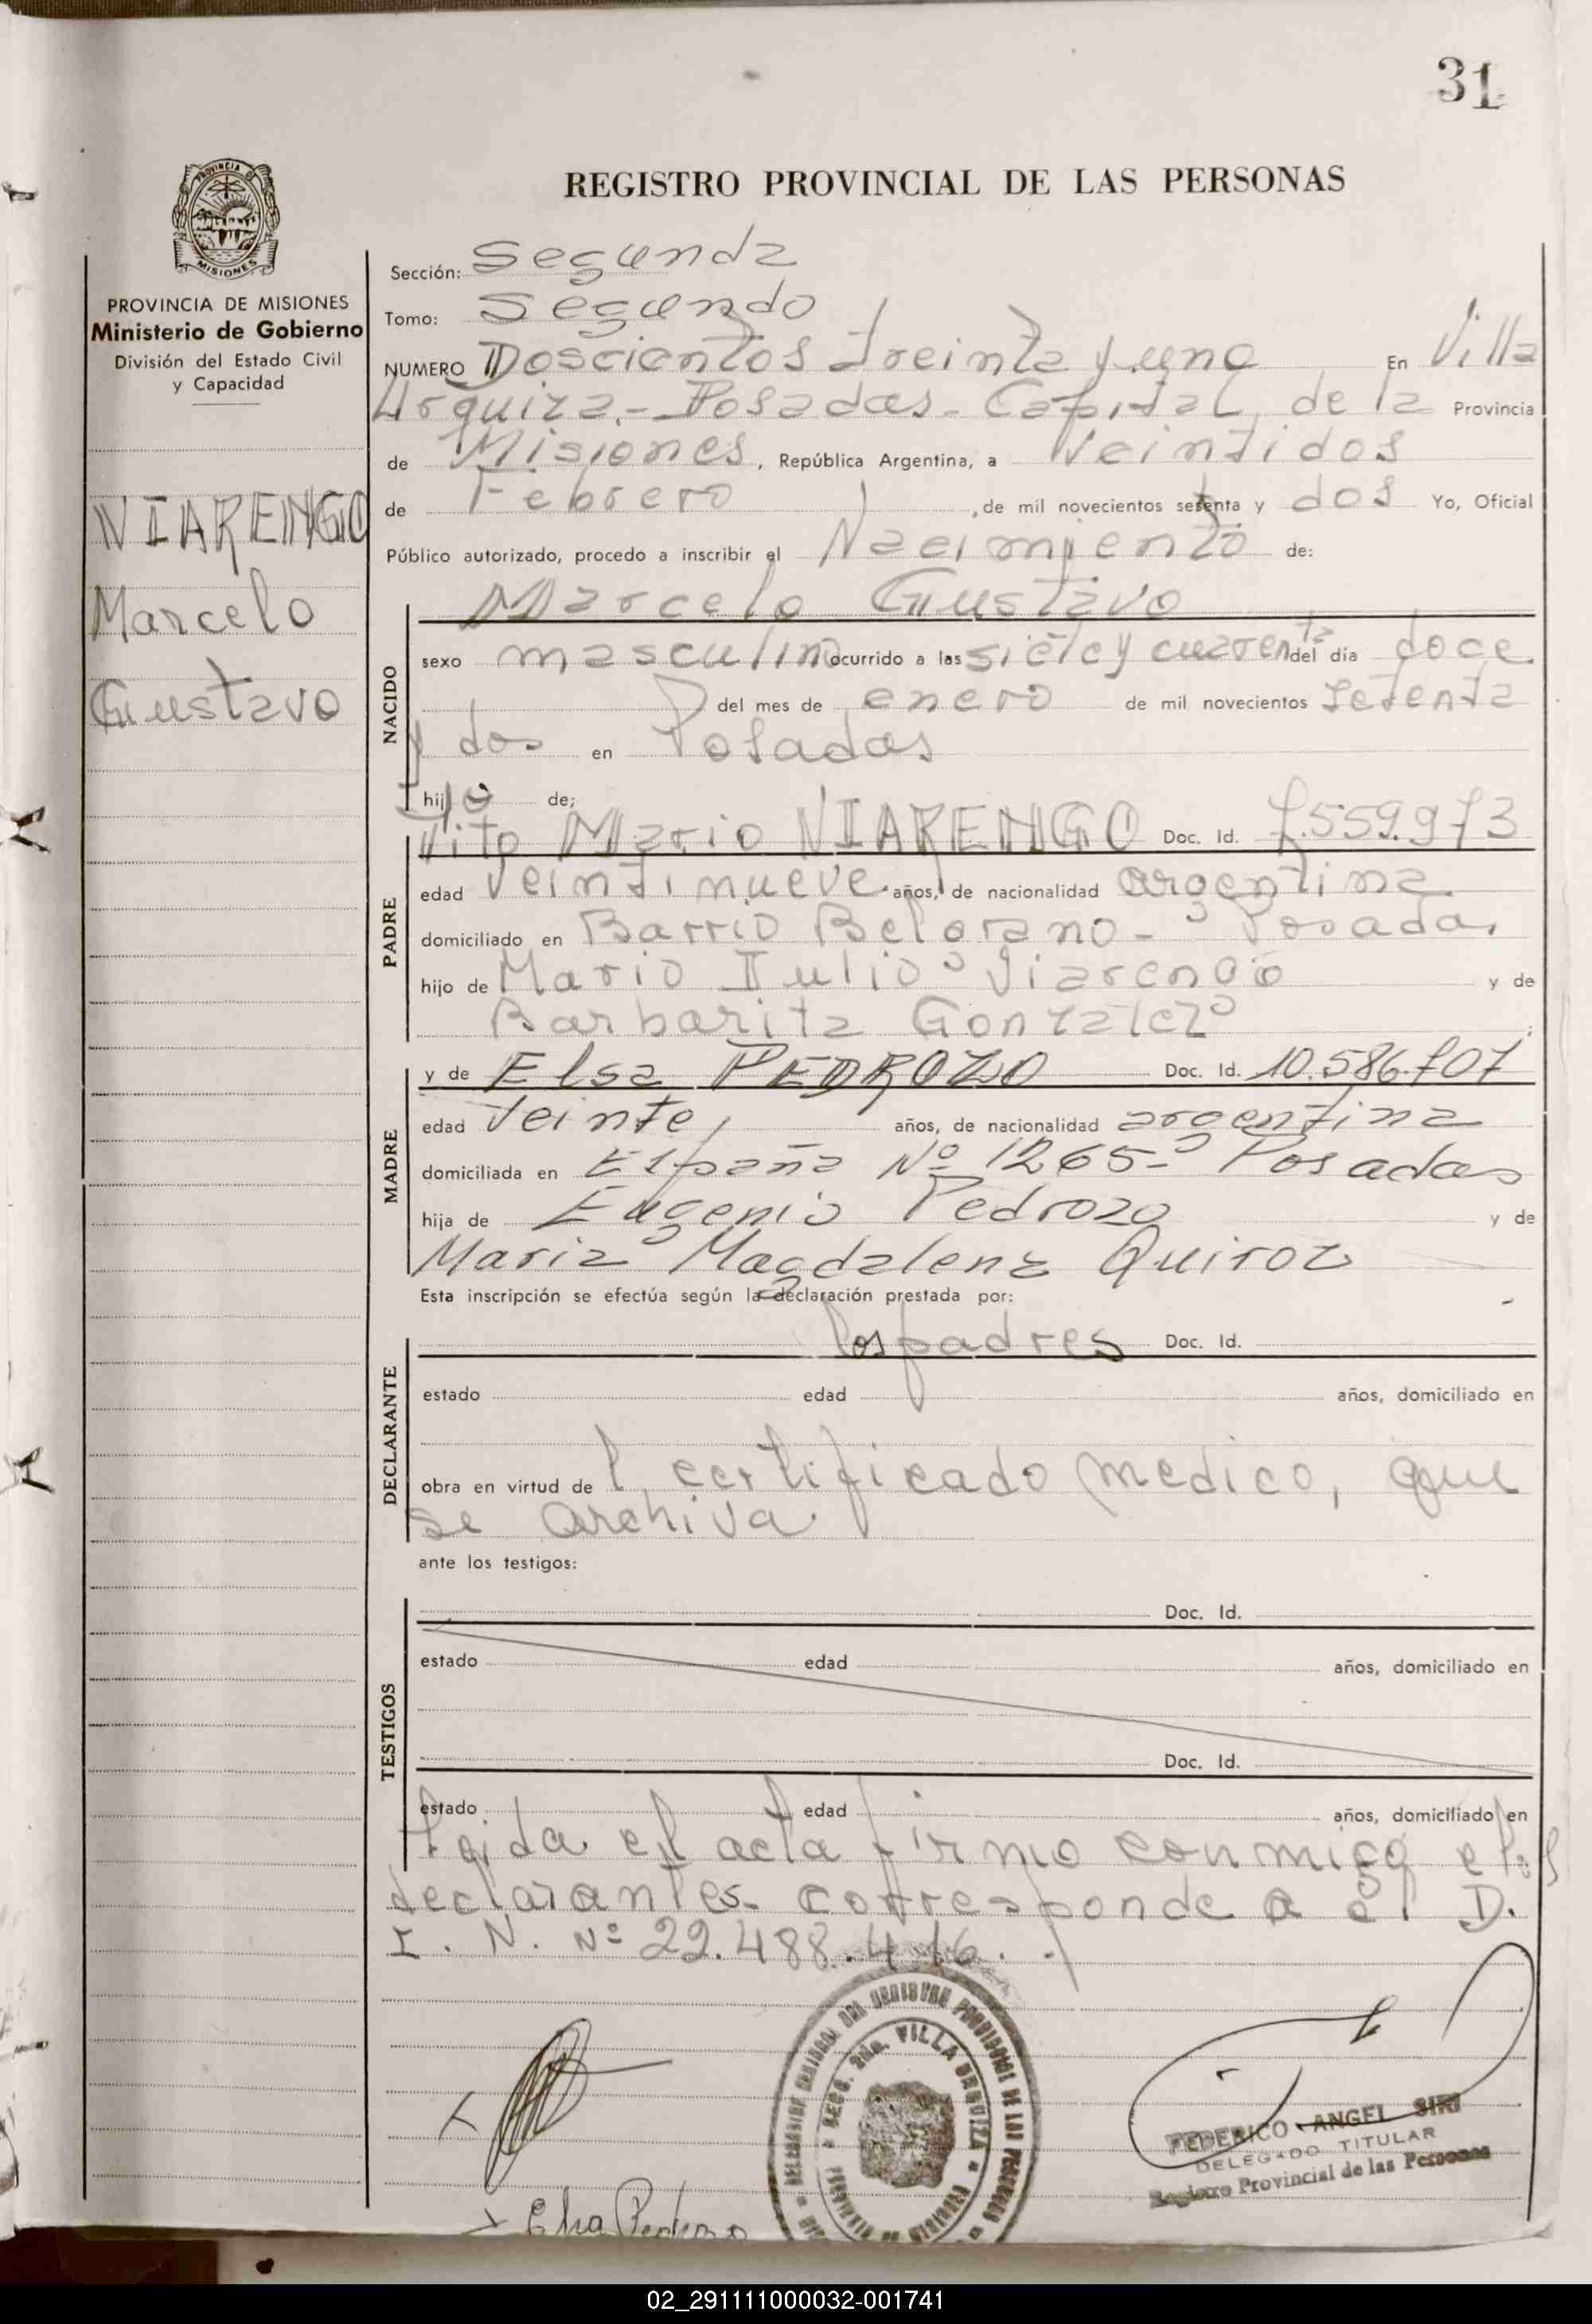 31
REGISTRO PROVINCIAL DE LAS PERSONAS
PROVINCIA DE MISIONES
Ministerio de Gobierno
División del Estado Civil
y Capacidad
VIARENGO
Marcelo
Gustavo
Sección: Segunda
Tomo: Segundo
NUMERO Doscientos treinta y uno En Villa
Urquiza.- Posadas- Capital de la Provincia
de Misiones, República Argentina, a Veintidos
de Febrero, de mil novecientos setenta y dos Yo, Oficial
Público autorizado, procedo a inscribir el Nacimiento de:
Marcelo Gustavo
NACIDO
sexo masculino ocurrido a las siete y cuarenta del día doce
del mes de enero de mil novecientos setenta
y dos en Posadas
hijo de;
PADRE
Vito Mario VIARENGO Doc. Id. 7.559.973
edad Veintinueve años, de nacionalidad argentina
domiciliado en Barrio Belgrano- Posadas
hijo de Mario Julio Viarengo y de
Barbarita Gonzalez
MADRE
y de Elsa PEDROZO Doc. Id. 10.586.707
edad Veinte años, de nacionalidad argentina
domiciliada en España Nº 1265- Posadas
hija de Eugenio Pedrozo y de
Maria Magdalena Quiroz
Esta inscripción se efectúa según la declaración prestada por:
DECLARANTE
los padres Doc. Id.
estado edad años, domiciliado en
obra en virtud de l certificado medico, que
se archiva
ante los testigos:
TESTIGOS
Doc. Id.
estado edad años, domiciliado en
Doc. Id.
estado edad años, domiciliado en
Leida el acta firmo conmigo el los
declarantes- corresponde a él D.
I. N. Nº 22.488.416.
SECC. 2da. VILLA URQUIZA
FEDERICO ANGEL SIRI
DELEGADO TITULAR
Registro Provincial de las Personas
Elsa Pedrozo
02_291111000032-001741